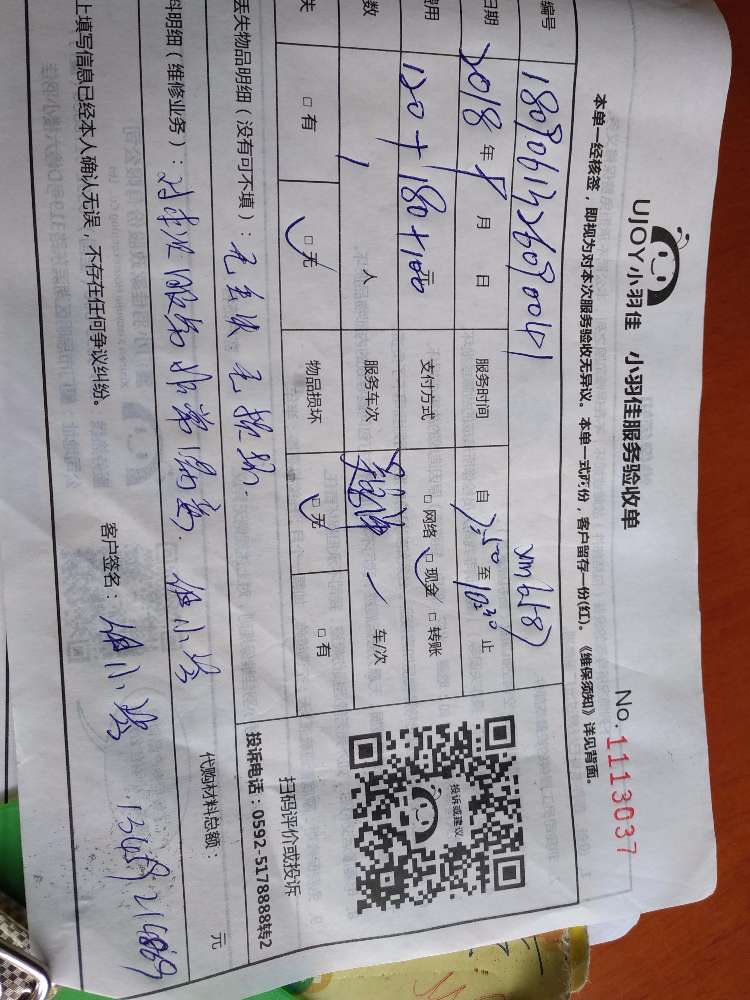 UJOY小羽佳 小羽佳服务验收单
No.1113037
本单一经核签，即视为对本次服务验收无异议。本单一式两份，客户留存一份(红)。《维保须知》详见背面。
编号
日期 2018 年 月 日 服务时间 自 7:50 至 10:30 止
费用 120+180+100 元 支付方式 □网络 □现金 □转账
数 1 人 服务车次 车/次
失 □有 □无 物品损坏 □无 □有
丢失物品明细（没有可不填）： 无丢失 无损坏.
料明细（维修业务）： 对本次服务非常满意. 代购材料总额： 元
上填写信息已经本人确认无误，不存在任何争议纠纷。 客户签名：
投诉或建议
扫码评价或投诉
投诉电话：0592-5178888转2